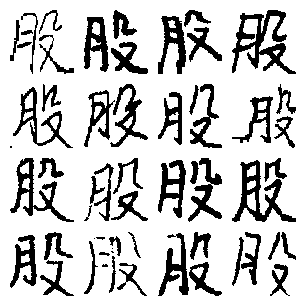 股股股股
股股股股
股股股股
股股股股